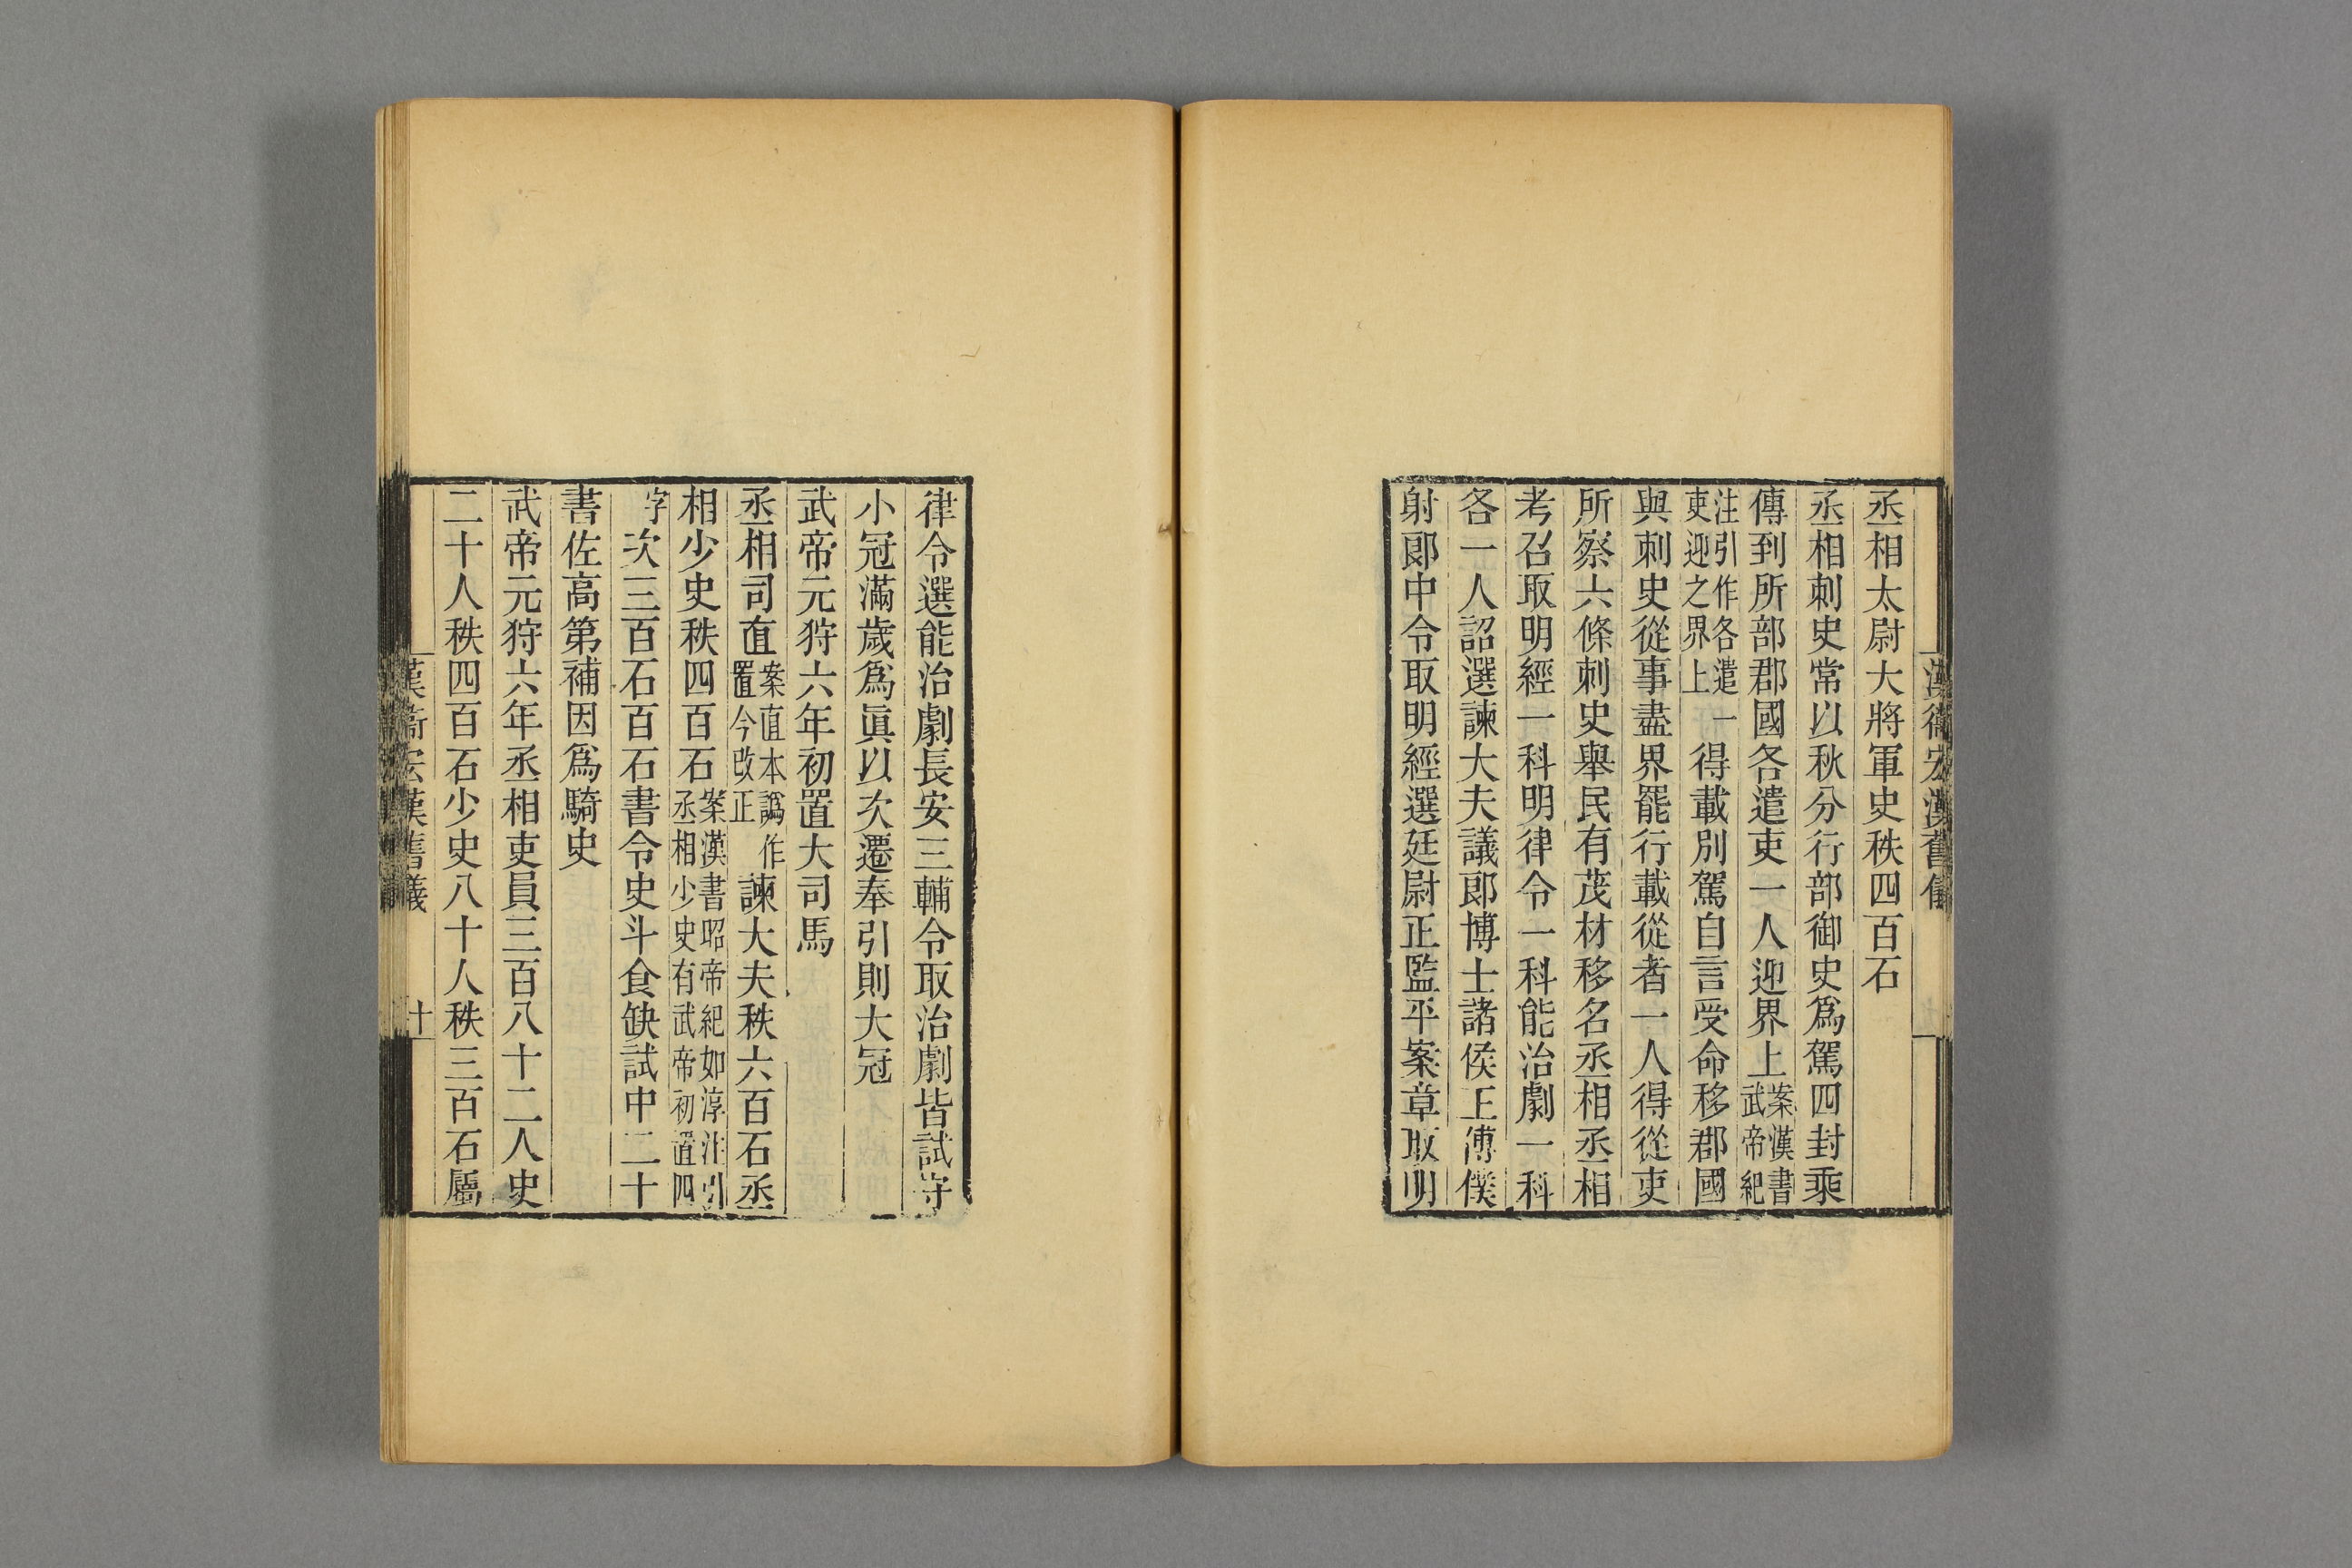 漢衛宏漢舊儀
丞相太尉大將軍史秩四百石
丞相刺史常以秋分行部御史爲駕四封乘
傳到所部郡國各遣吏一人迎界上案漢書武帝紀
注引作各遣一吏迎之界上得載別駕自言受命移郡國
與刺史從事盡界罷行載從者一人得從吏
所察六條刺史舉民有茂材移名丞相丞相
考召取明經一科明律令一科能治劇一科
各一人詔選諫大夫議郞博士諸侯王傅僕
射郞中令取明經選廷尉正監平案章取明
律令選能治劇長安三輔令取治劇皆試守
小冠滿歲爲眞以次遷奉引則大冠
武帝元狩六年初置大司馬
丞相司直案直本譌作置今改正諫大夫秩六百石丞
相少史秩四百石案漢書昭帝紀如淳注引丞相少史有武帝初置四
字次三百石百石書令史斗食缺試中二十
書佐高第補因爲騎史
武帝元狩六年丞相吏員三百八十二人史
二十人秩四百石少史八十人秩三百石屬
漢衛宏漢舊儀 十